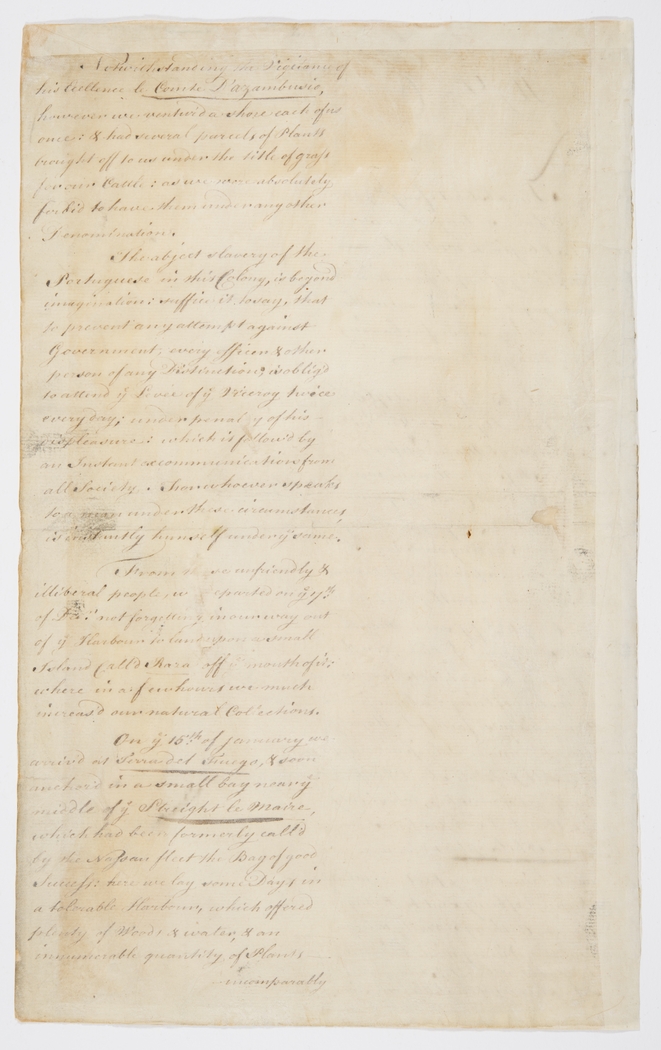 Notwithstanding the Vigilance of
his Excellence le Comte D'azambusio,
however we ventur'd a shore each of us
once: & had several parcels of Plants
brought off to us under the title of grass
for our Cattle: as we were absolutely
forbid to have them under any other
Denomination.
The abject slavery of the
Portuguese in this Colony, is beyond
imagination: suffice it to say, that
to prevent any attempt against
Government, every officer & other
person of any Distinction, is oblig'd
to attend ye Levee of ye Viceroy twice
every day; under penalty of his
displeasure: which is follow'd by
an Instant excommunication from
all Society. Than whoever speaks
to a man under these circumstances,
is instantly himself under ye same.
From these unfriendly &
illiberal people w departed on ye 7th
of not forgetting in our way out
of ye Harbour to land upon a small
Island call'd Raza off ye mouth of it:
where in a few hours we much
increas'd our natural Collections.
On ye 15th of January we
arriv'd at Terra del Fuego, & soon
anchor'd in a small bay near ye
middle of ye Streight le Maire,
which had been formerly call'd
by the Nassau fleet the Bay of good
Success: here we lay some Days in
a tolerable Harbour, which offered
plenty of Wood & water, & an
innumerable quantity of Plants
incomparably